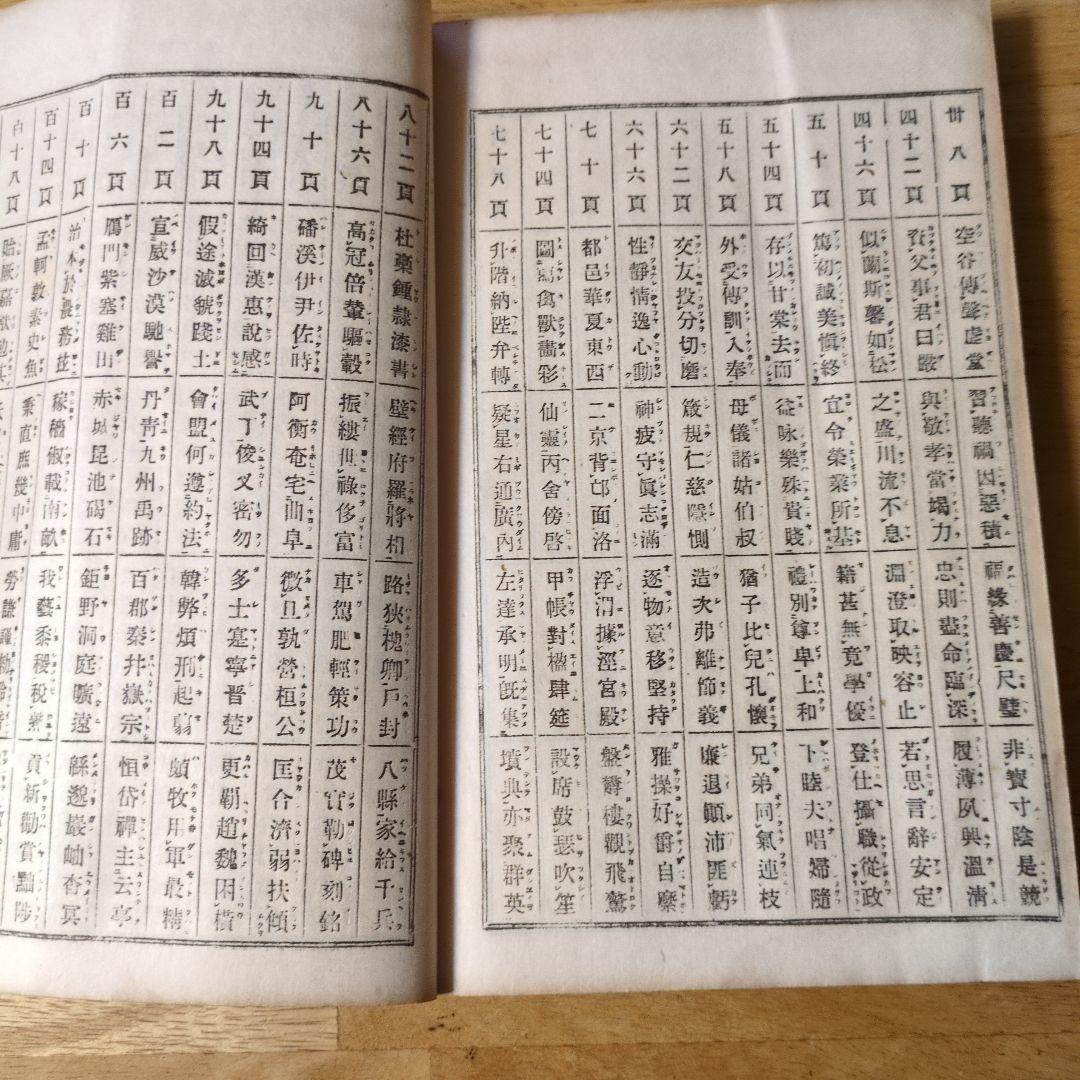 卅八頁 空谷傳聲虛堂 習聽禍因惡積 福緣善慶尺璧 非寶寸陰是競
四十二頁 資父事君曰嚴 與敬孝當竭力 忠則盡命臨深 履薄夙興溫凊
四十六頁 似蘭斯馨如松 之盛川流不息 淵澄取映容止 若思言辭安定
五十頁 篤初誠美愼終 宜令榮業所基 籍甚無竟學優 登仕攝職從政
五十四頁 存以甘棠去而 益咏樂殊貴賤 禮別尊卑上和 下睦夫唱婦隨
五十八頁 外受傅訓入奉 母儀諸姑伯叔 猶子比兒孔懷 兄弟同氣連枝
六十二頁 交友投分切磨 箴規仁慈隱惻 造次弗離節義 廉退顚沛匪虧
六十六頁 性靜情逸心動 神疲守眞志滿 逐物意移堅持 雅操好爵自縻
七十頁 都邑華夏東西 二京背邙面洛 浮渭據涇宮殿 盤欝樓觀飛驚
七十四頁 圖寫禽獸畵彩 仙靈丙舍傍啓 甲帳對楹肆筵 設席鼓瑟吹笙
七十八頁 升階納陛弁轉 疑星右通廣內 左達承明旣集 墳典亦聚群英
八十二頁 杜藁鍾隷漆書 壁經府羅將相 路狹槐卿戶封 八縣家給千兵
八十六頁 高冠倍輦驅轂 振纓世祿侈富 車駕肥輕策功 茂實勒碑刻銘
九十頁 磻溪伊尹佐時 阿衡奄宅曲阜 微旦孰營桓公 匡合濟弱扶傾
九十四頁 綺回漢惠說感 武丁俊乂密勿 多士寔寧晋楚 更覇趙魏困橫
九十八頁 假途滅虢踐土 會盟何遵約法 韓弊煩刑起翦 頗牧用軍最精
百二頁 宣威沙漠馳譽 丹靑九州禹跡 百郡秦并嶽宗 恒岱禪主云亭
百六頁 鴈門紫塞雞田 赤城昆池碣石 鉅野洞庭曠遠 緜邈巖岫杳冥
百十頁 治本於農務茲 稼穡俶載南畝 我藝黍稷稅熟 貢新勸賞黜陟
百十四頁 孟軻敦素史魚 秉直庶幾中庸 勞謙謹勅
百十八頁 貽厥嘉猷勉其